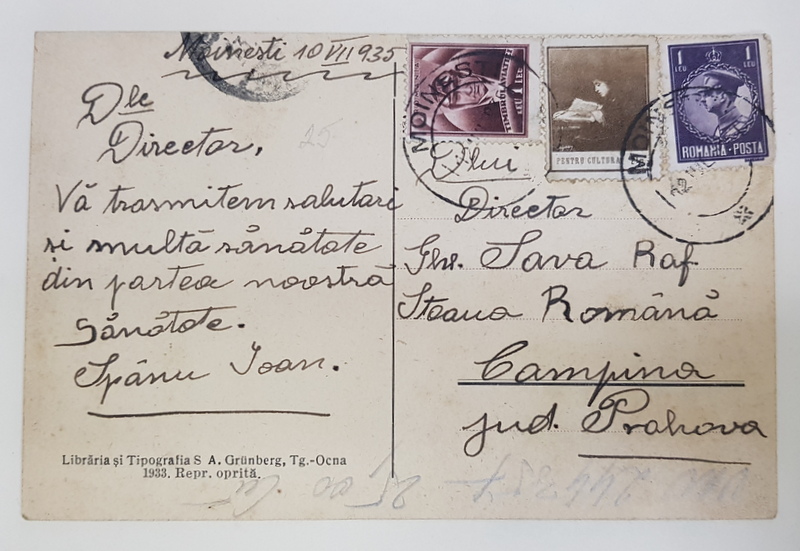 Moinesti 10 VII 935
Dle
Director,
25
Vă trasmitem salutari
si multă sănătate
din partea noostră
Sănătate.
Spânu Ioan.
Librăria și Tipografia S A. Grünberg, Tg.-Ocna
1933. Repr. oprită.
TIMBRUL AVIAȚIEI
1 LEU
PENTRU CULTURA
1 LEU
1 LEU
ROMANIA·POSTA
MOINESTI
MOINEST
Dlui
Director
Ghe. Sava Raf
Steaua Română
Campina
jud. Prahova